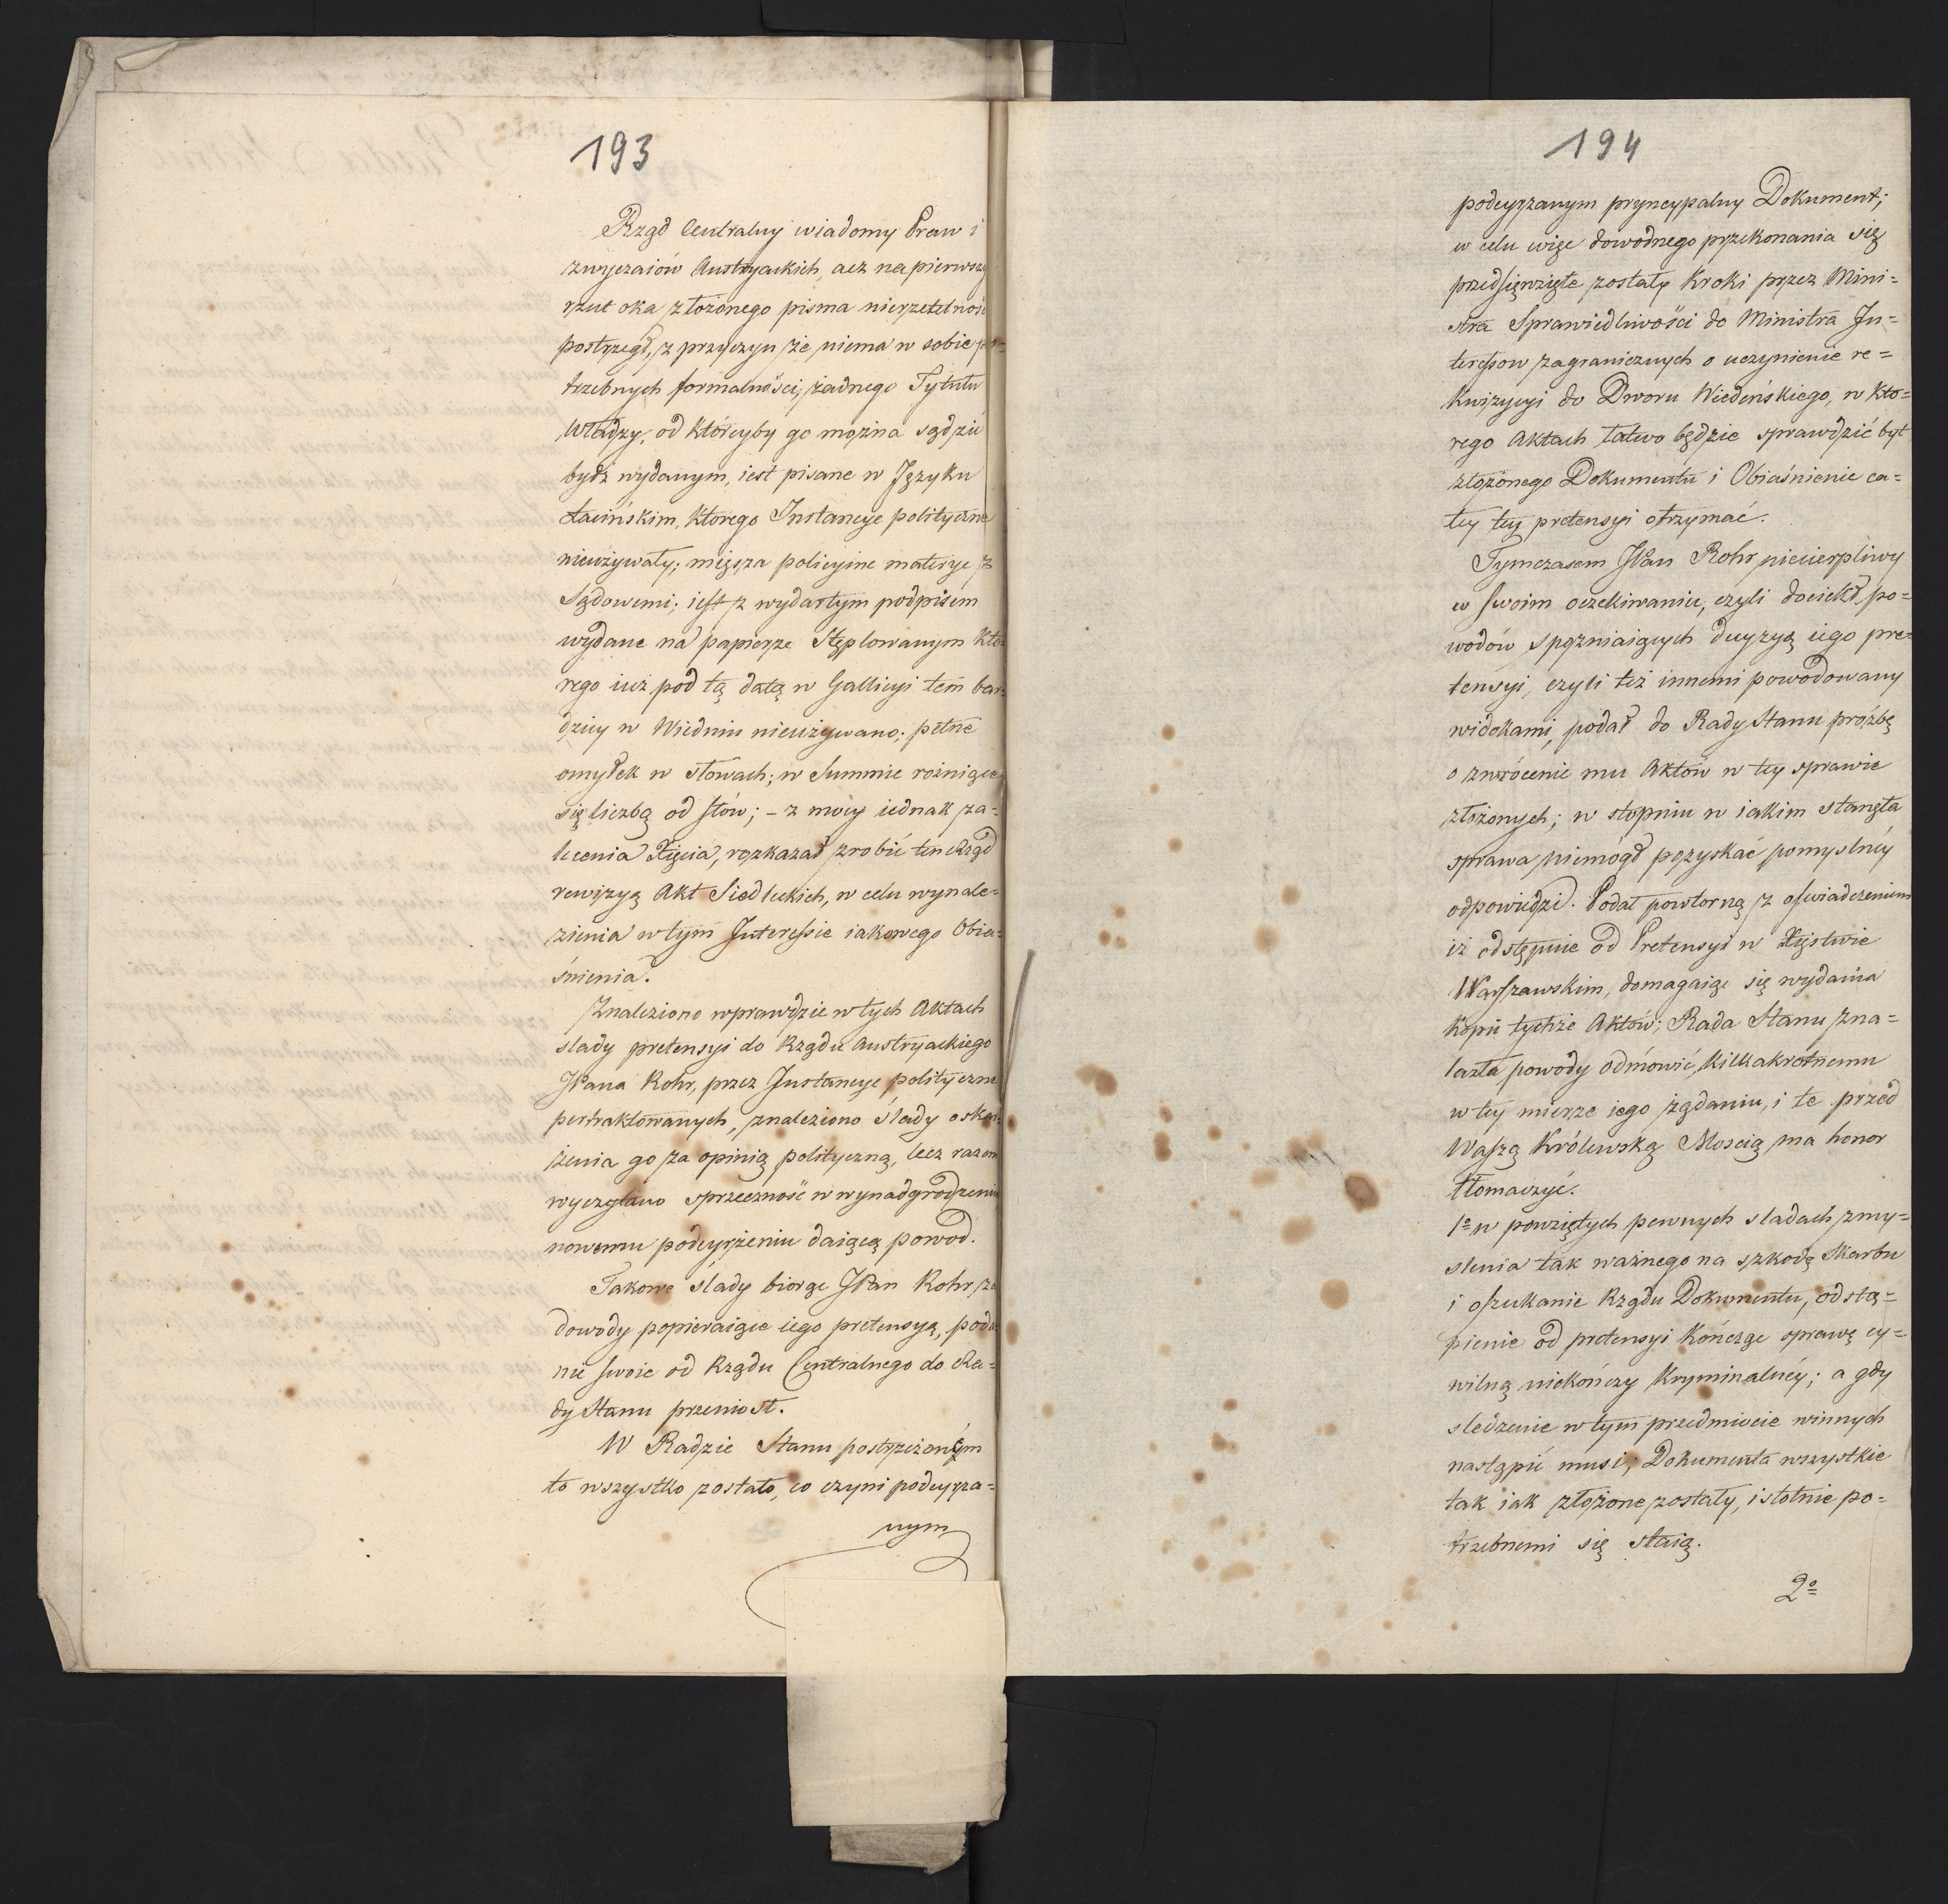 193
Rząd Centralny wiadomy Praw i
zwyczaiów Austryackich, acz na pierwszy
rzut oka złożonego pisma nierzetelność
postrzegł, z przyczyn że niema w sobie po=
trzebnych formalności, żadnego Tytułu
Władzy, od któreyby go można sądzić
bydź wydanym, iest pisane w Języku
Łacińskim, którego Instancye polityczne
nieużywały; mięsza policyine materye z
Sądowemi; iest z wydartym podpisem
wydane na papierze Stęplowanym któ=
rego iuż pod tą datą w Gallicyi tem bar=
dziey w Wiedniu nieużywano; pełne
omyłek w słowach; w Summie rożniące
się liczbą od słów; – z mocy iednak za=
lecenia Xięcia, rozkazał zrobić ten Rząd
rewizyą Akt Siedleckich, w celu wynale=
zienia w tym Interessie iakowego Obia=
śnienia.
Znaleziono wprawdzie w tych Aktach
slady pretensyi do Rządu Austryackiego
JPana Rohr, przez Instancye polityczne
pertraktowanych, znaleziono ślady oskar=
żenia go za opinią polityczną, lecz razem
wyczytano sprzeczność w wynadgrodzeniu
nowemu podeyrzeniu daiącą powod.
Takowe ślady biorąc JPan Rohr za
dowody popieraiące iego pretensyą, poda
nie swoie od Rządu Centralnego do Ra=
dy Stanu przeniosł.
W Radzie Stanu postrzeżonym
to wszystko zostało, co czyni podeyrza=
nym
194
podeyrzanym pryncypalny Dokument;
w celu więc dowodnego przekonania się
przedsięwzięte zostały kroki przez Mini=
stra Sprawiedliwości do Ministra In=
teressow zagranicznych o uczynienie re=
kwizycyi do Dworu Wiedeńskiego, w któ=
rego Aktach łatwo będzie sprawdzić byt
złożonego Dokumentu i Obiaśnienie ca=
łey tey pretensyi otrzymać.
Tymczasem JPan Rohr niecierpliwy
w swoim oczekiwaniu, czyli dociekł po=
wodów spoźniaiących decyzyą iego pre=
tensyi, czyli też innemi powodowany
widokami, podał do Rady Stanu prożbę
o zwrócenie mu Aktów w tey sprawie
złożonych; w stopniu w iakim stanęła
sprawa niemógł pozyskać pomyslnéy
odpowiedzi. Podał powtorną z oswiadczeniem
iż odstępuie od Pretensyi w Xięstwie
Warszawskim, domagaiąc się wydania
kopii tychże Aktów; Rada Stanu zna=
lazła powody odmówić kilkakrotnemu
w tey mierze iego żądaniu, i te przed
Waszą Królewską Mością ma honor
tłomaczyć.
1º w powziętych pewnych sladach zmy=
slenia tak ważnego na szkodę Skarbu
i oszukanie Rządu Dokumentu, odstą=
pienie od pretensyi kończąc sprawę cy=
wilną niekończy kryminalnéy; a gdy
sledzenie w tym przedmiocie winnych
nastąpić musi, Dokumenta wszystkie
tak iak złożone zostały, istotnie po=
trzebnemi się staią.
2º